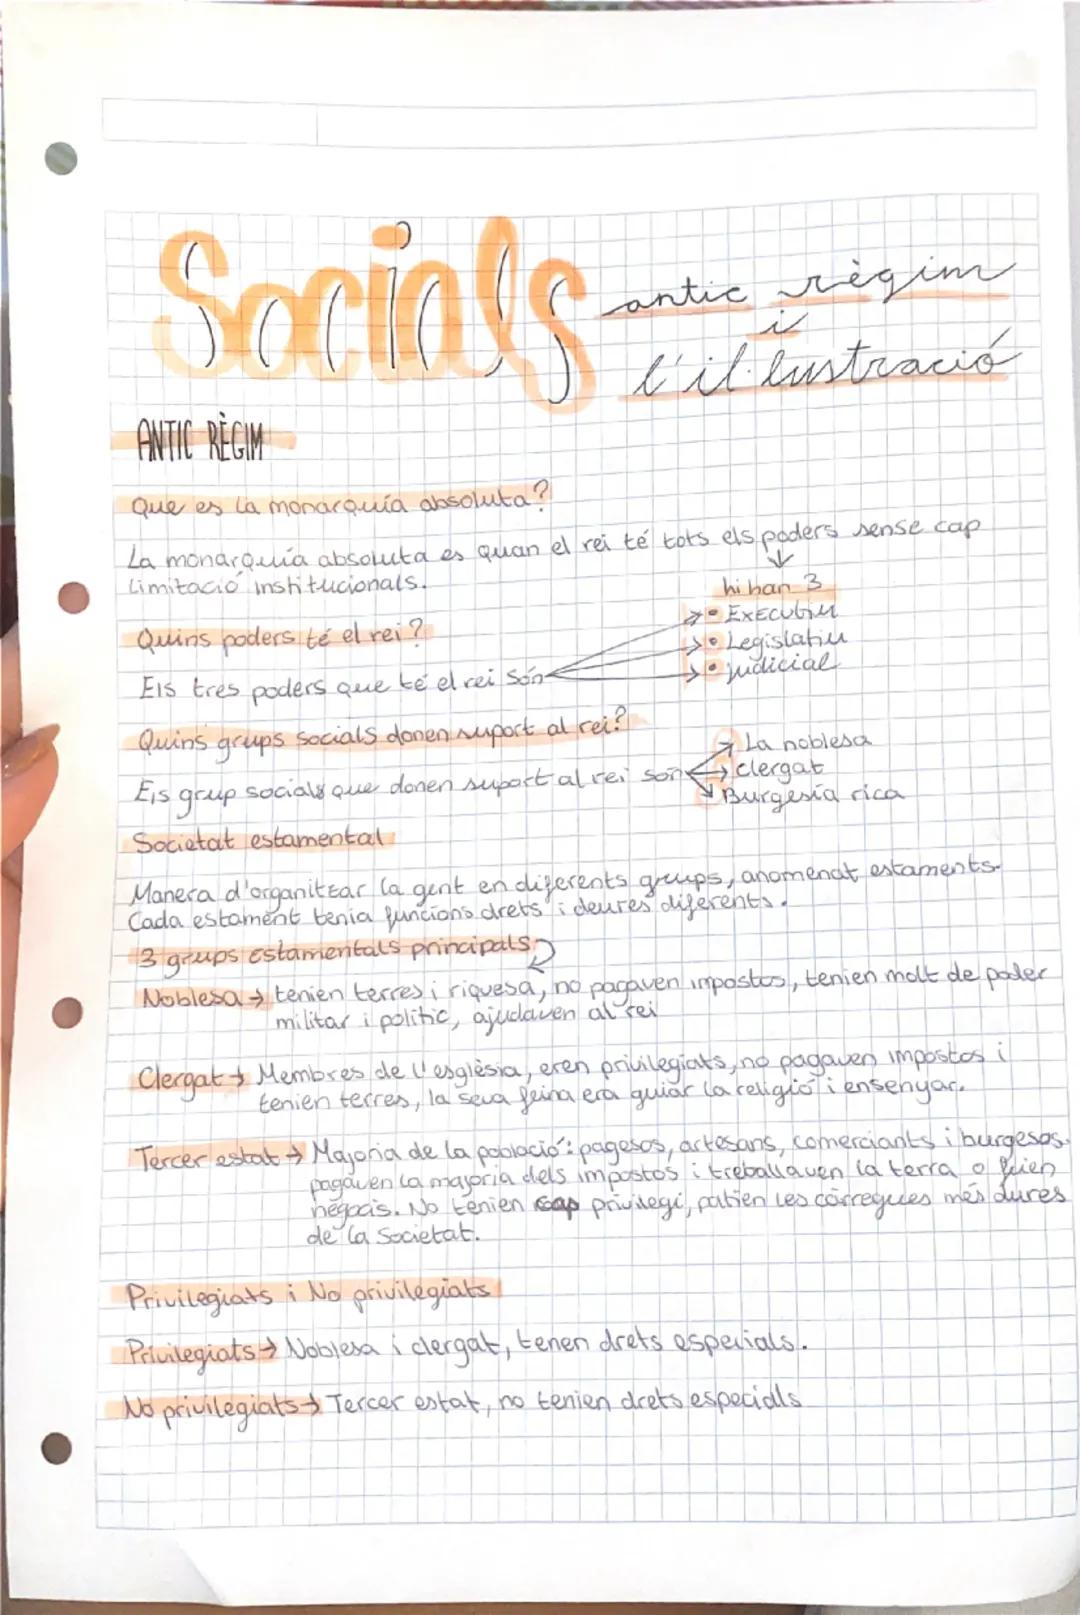 Socials antic règim
i
l'il·lustració
ANTIC RÈGIM
Que es la monarquia absoluta?
La monarquía absoluta es quan el rei té tots els poders sense cap
limitació institucionals.
hi han 3
Quins poders té el rei?
• Executiu
• Legislatiu
• judicial
Els tres poders que té el rei són
Quins grups socials donen suport al rei?
→ La noblesa
Els grup socials que donen suport al rei són → clergat
→ Burgesía rica
Societat estamental
Manera d'organitzar la gent en diferents grups, anomenat estaments.
Cada estament tenia funcions drets i deures diferents.
3 grups estamentals principals
Noblesa → tenien terres i riquesa, no pagaven impostos, tenien molt de poder
militar i politic, ajudaven al rei
Clergat → Membres de l'esglèsia, eren privilegiats, no pagaven impostos i
tenien terres, la seva feina era guiar la religió i ensenyar.
Tercer estat → Majoria de la població: pagesos, artesans, comerciants i burgesos.
pagaven la majoria dels impostos i treballaven la terra o feien
negocis. No tenien cap privilegi, patien les càrregues més dures
de la Societat.
Privilegiats i No privilegiats
Privilegiats → Noblesa i clergat, tenen drets especials.
No privilegiats → Tercer estat, no tenien drets especials